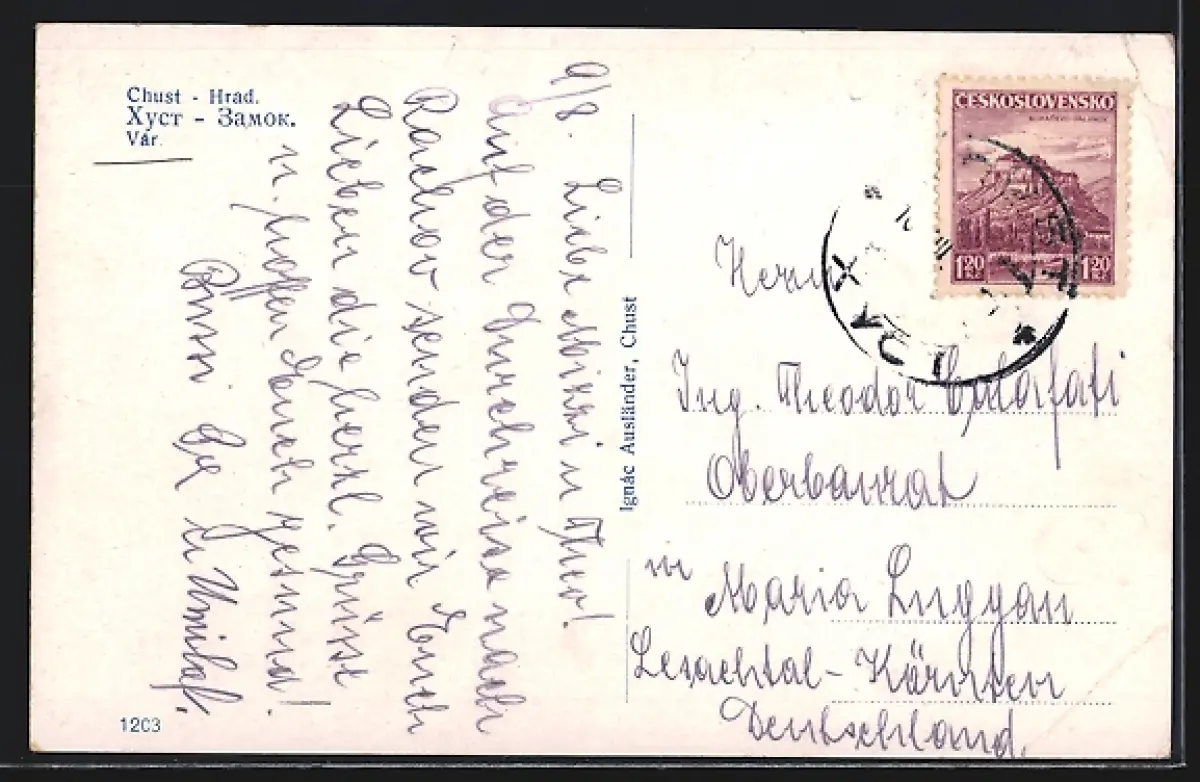 Chust - Hrad.
Хуст - Замок.
Vár.
9/8. Liebe Mizzi u Theo!
Auf der Durchreise nach
Rachov senden wir Euch
Lieben die herzl. Grüsse
u. hoffen Euch gesund!
Bussi
1203
Ignác Ausländer, Chust
ČESKOSLOVENSKO
1.20 1.20
Herrn
Ing. Theodor Calafati
Oberbaurat
in Maria Luggau
Lesachtal - Kärnten
Deutschland.